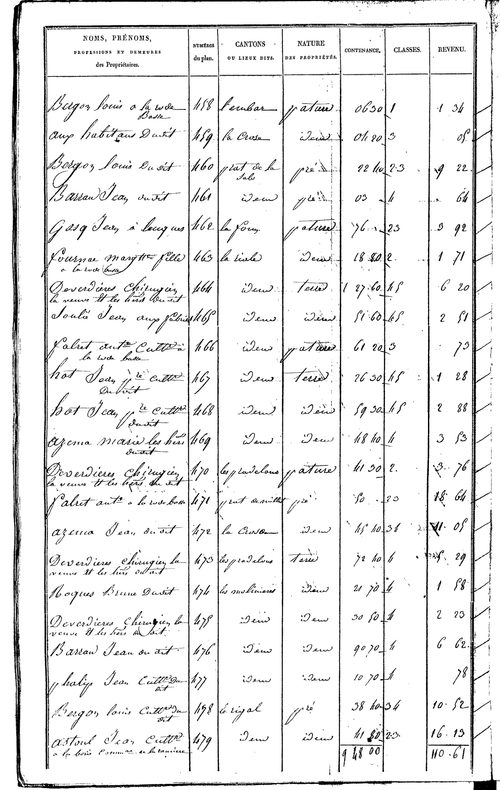 NOMS, PRÉNOMS, PROFESSIONS ET DEMEURES des Propriétaires. NUMÉROS du plan. CANTONS OU LIEUX DITS. NATURE DES PROPRIÉTÉS. CONTENANCE. CLASSES. REVENU.
Bergon louis a la rode Basse 458 l'embar pature 06 30 1 1 34
aux habitans Dudit 459 la Croze idem 04 20 3 05
Bergon louis Dudit 460 prat de la Sale pré 22 40 23 9 22
Barrau Jean dudit 461 idem pré 03 4 64
Gasq Jean à 462 la font pature 76 23 3 92
fournac marg.te fille a la rode basse 463 la idem 18 80 2 1 71
Deverdieres Chirugien la veuve et les hers dudit 464 idem terre 1 27 60 45 6 20
Jean aux 465 idem idem 51 60 45 2 51
falret ant.e Cult.r à la rode basse 466 idem pature 61 20 3 73
hot Jean p.re Cult.r Dudit 467 idem terre 26 30 45 1 28
hot Jean p.re Cult.r dudit 468 idem idem 59 30 45 2 88
azema marie les hers dudit 469 idem idem 48 40 4 3 53
Deverdieres Chirugien la veuve et les hers du dit 470 les pradelous pature 41 30 2 3 76
falret ant.e a la rode basse 471 prat pré 50 23 18 64
azema Jean dudit 472 la idem 45 40 34 11 05
Deverdieres Chirugien la veuve et les hers dudit 473 les pradelous terre 72 40 4 5 29
Roques Brune Dudit 474 les molinieres idem 21 70 4 1 58
Deverdieres Chirugien la veuve et les hers du dit 475 idem idem 30 50 4 2 23
Barrau Jean du dit 476 idem idem 90 70 4 6 62
phalip Jean Cult.r du dit 477 idem idem 10 70 4 78
Bergon louis Cult.r du dit 478 le rigal pré 38 40 34 10 52
astoul Jean Cult.r 479 idem idem 41 80 23 16 13
9 48 00 110 61